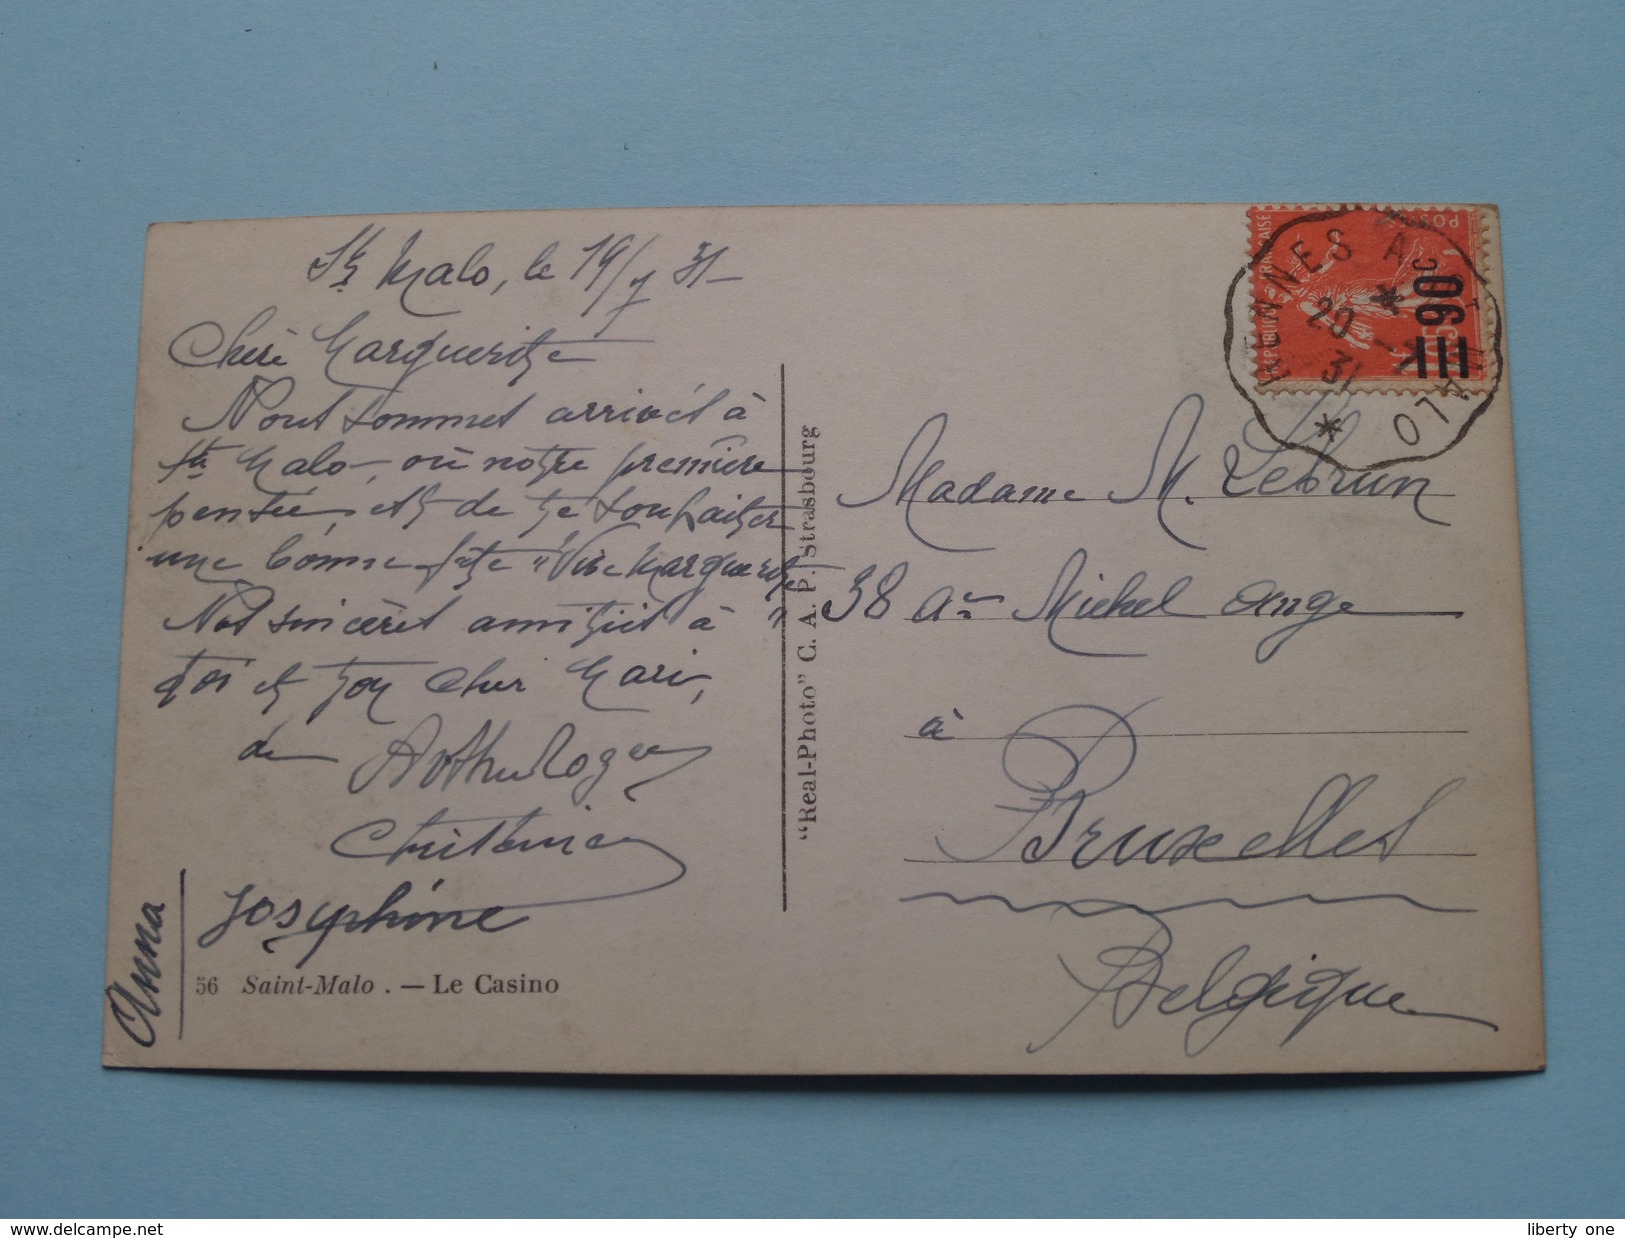 St Malo, le 19/7 31
Chère Marguerite
Nous sommes arrivés à
St Malo, où notre première
pensée, est de te souhaiter
une bonne fête "Vive Marguerite"
Nos sincères amitiés à
toi et ton cher Mari,
de Arthur Roger
Josephine
Anna
56 Saint-Malo . — Le Casino
"Real-Photo" C. A. P. Strasbourg
RENNES A ST MALO
20 -7
31
POSTES
REPUBLIQUE FRANÇAISE
=90
Madame M. Lebrun
38 Av Michel Ange
à
Bruxelles
Belgique
delcampe.net
liberty one